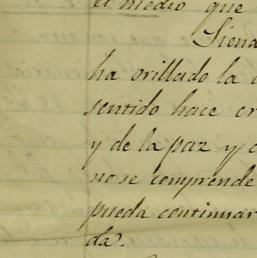 el medio que
Siend
ha orillado la
sentido hace cr
y de la paz y
no se comprende
pueda continuar
da.